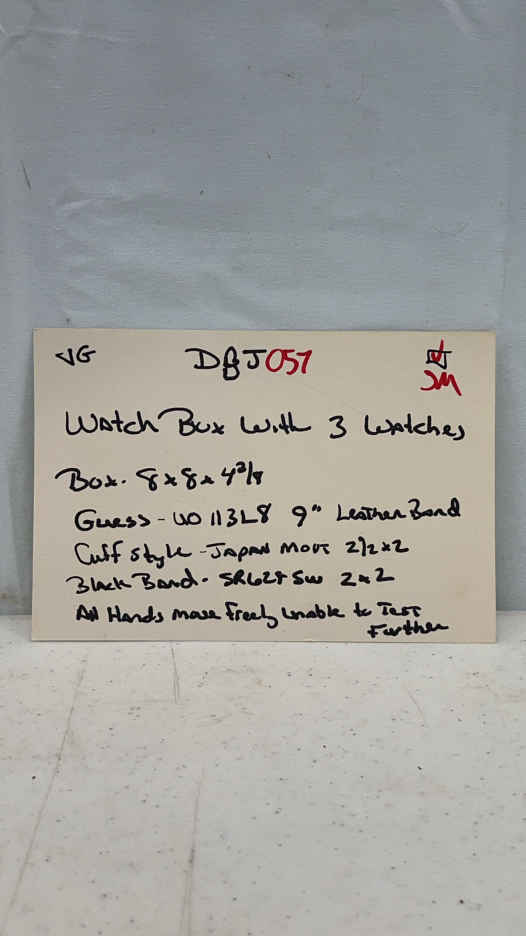 VG DBJ057
JM
Watch Box With 3 Watches
Box. 8x8x4 3/8
Guess - U0113L8 9" Leather Band
Cuff Style - Japan Movt 2 1/2 x 2
Black Band - SR626SW 2x2
All Hands move Freely Unable to Test
Further